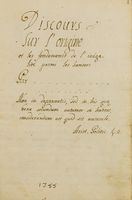 Discours
Sur l'origine
et les fondements de l'inéga-
lité parmi les hommes
Non in depravatis, sed in his quæ
bene secundum naturam se habent,
considerandum est quid sit naturale.
1755